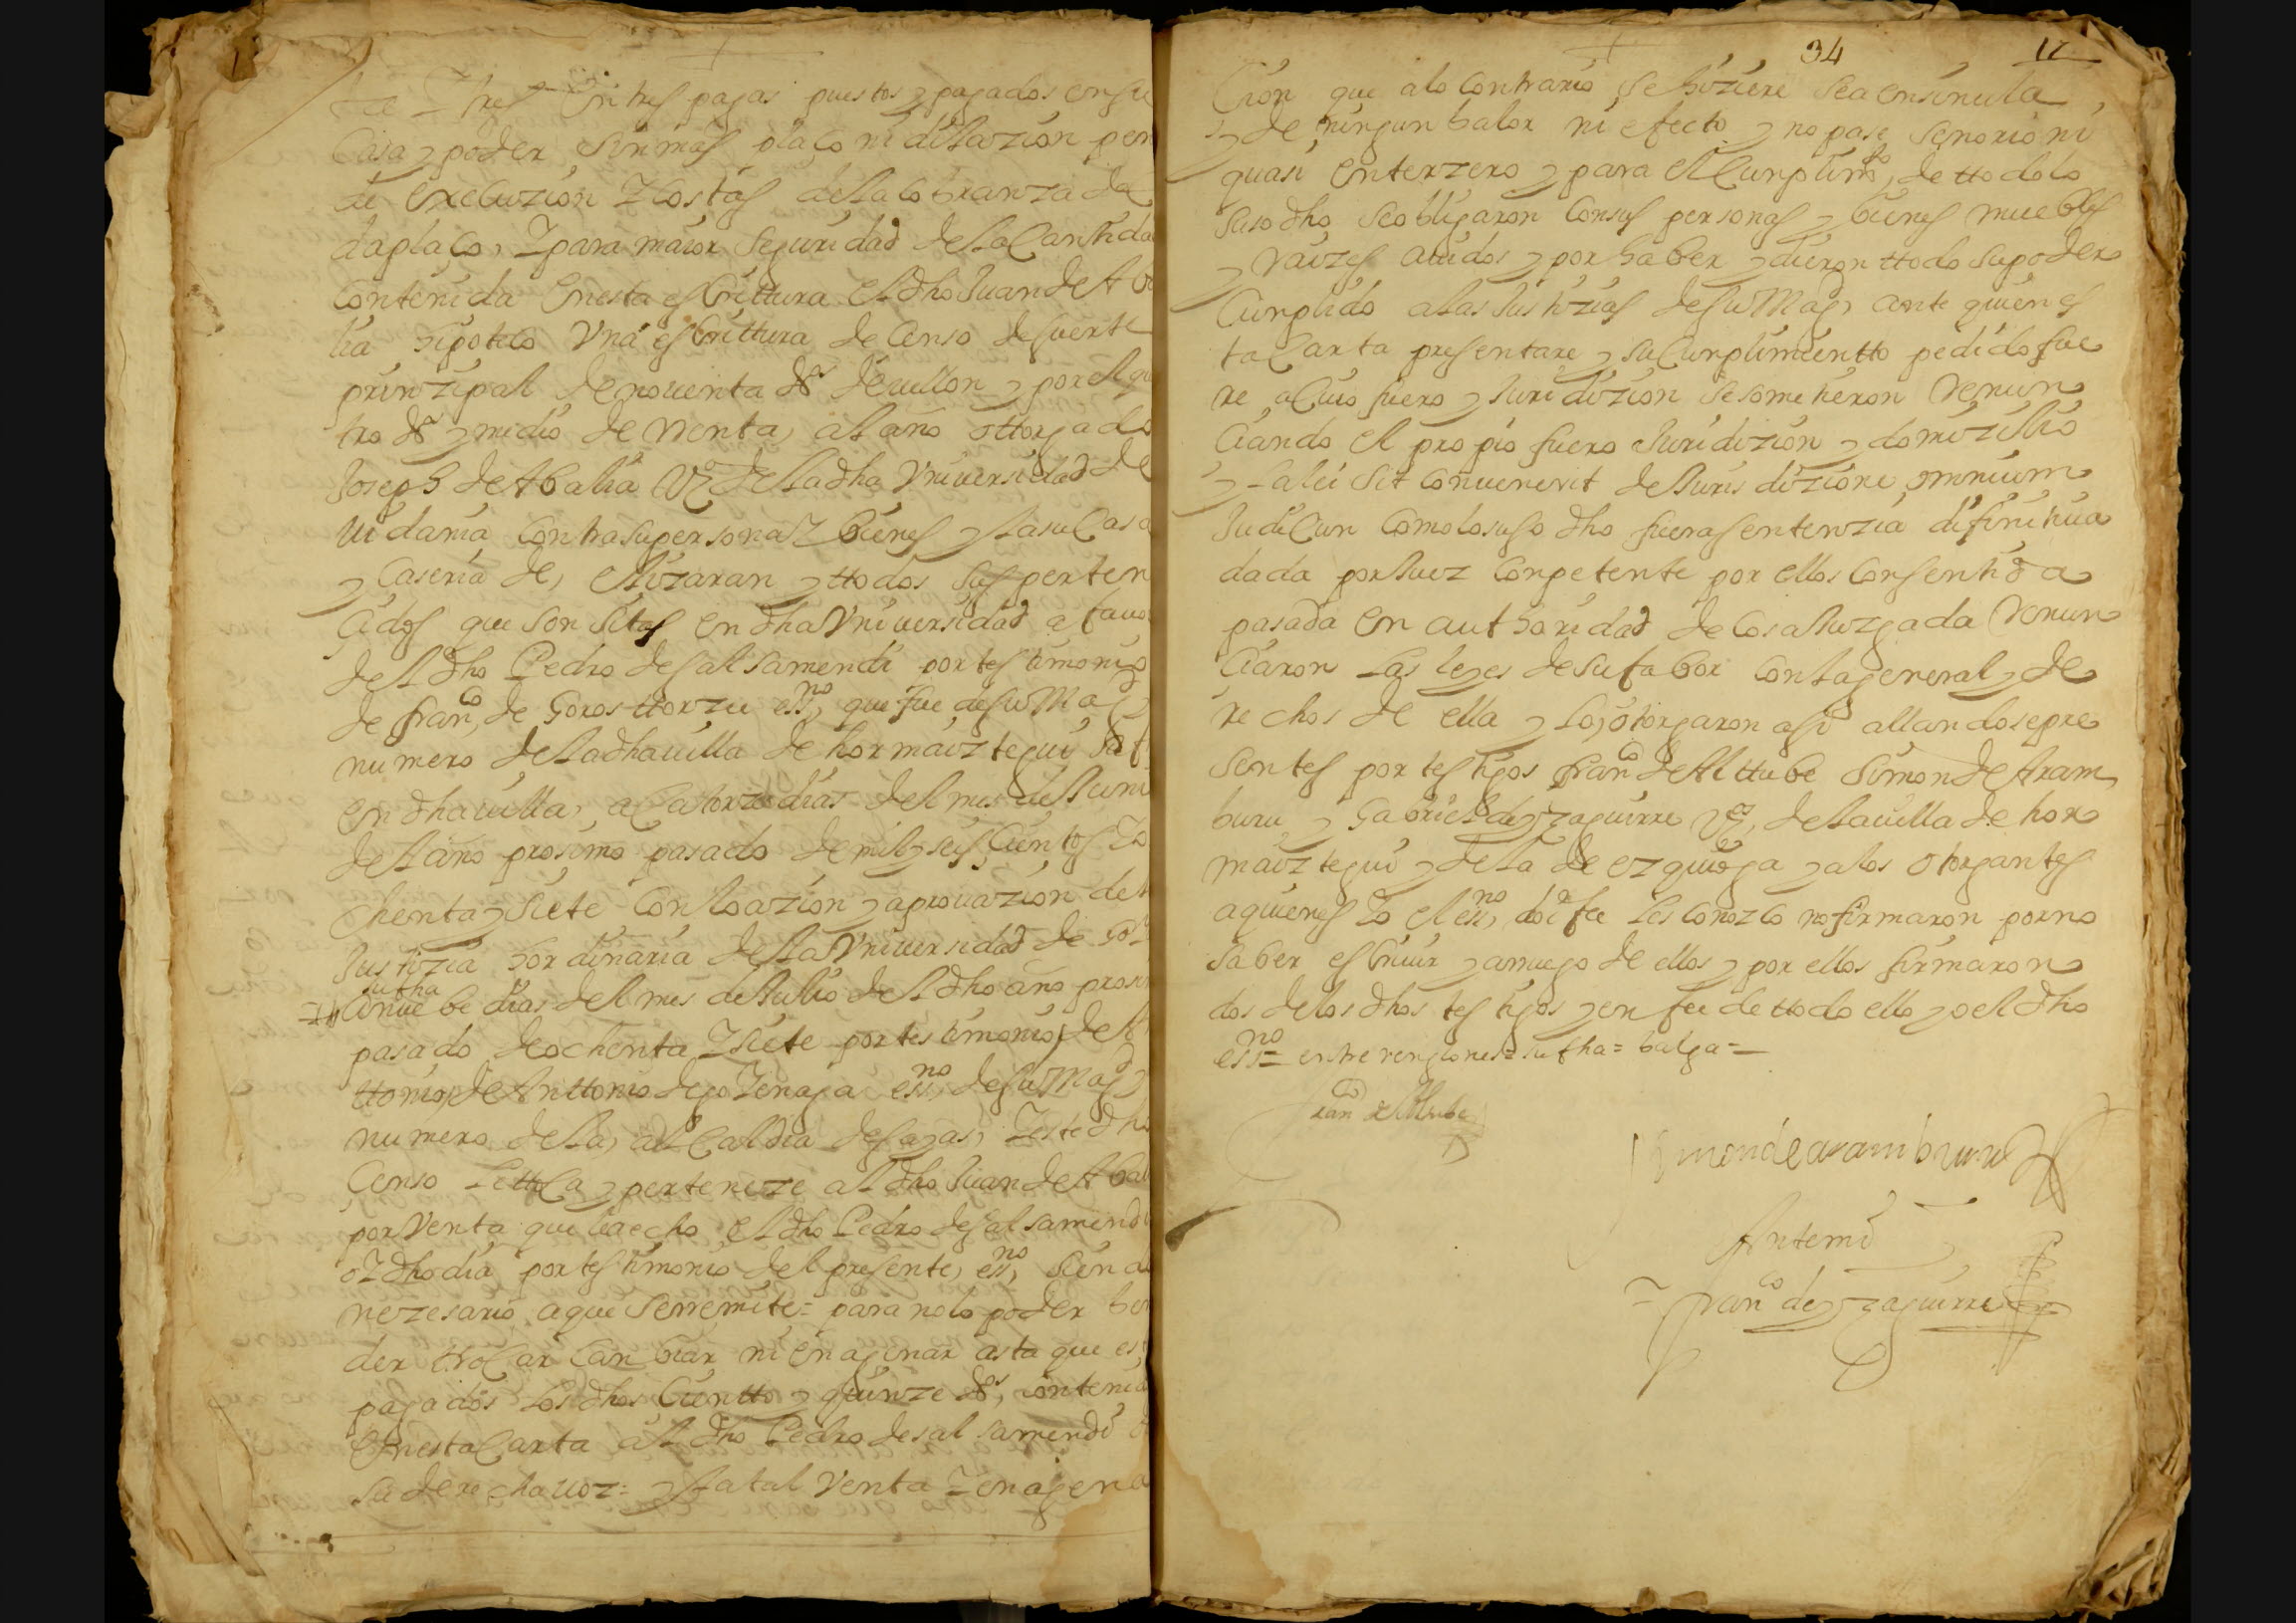 de Tres en tres pagas puestos y pagados en su
Casa y poder sin mas plaço ni dilazion pen
de execuzion y Costas de la cobranza de
da plaço, y para maior seguridad de la Cantida
Contenida en esta escrittura el dho Juan de Ab
lia hipoteco Una escrittura de Censo de suerte
prinzipal de noventa ds de vellon y por el qu
tro ds y medio de Renta, al año ottorgado
Joseph de Abalia Vzº de la dha Universidad de
Vidania Contra su persona y bienes y la su Casa
y Caseria de, elizaran y ttodos sus perten
cidos que son sitos en dha Universidad a favo
del dho Pedro de salsamendi por testimonio
de franco, de Gorosttorzu essno, que fue de su Magd
numero de la dha villa de hormaiztegui su f
en dha villa, a Catorze dias del mes de Juni
del año prosimo pasado de mil y seis Cientos y o
chenta y siete Con loazion y aprovazion de l
Justizia hordinaria de la Universidad de Goi
su fha
A nuebe dias del mes de Jullio del dho año prosi
pasado de ochenta y siete por testimonio, de A
ttonio, de Anttonio de goyenaga essno, de su Magd
numero de la, alCaldia de sayas, y este dho
Censo le ttoca y perteneze al dho Juan de Abal
por Venta que ha echo el dho Pedro de salsamendi
oy dho dia por testimonio del presente, essno, sien a
nezesario a que se rremite = para no lo poder ben
der trocar Canbiar ni enagenar asta que es
pagados los dhos Cientto y quinze ds, conteni
en esta Carta al dho Pedro de salsamendi o
su derecha voz = y la tal Venta y enagena
34 12
Cion que a lo Contrario se hiziere sea en si nula
y de ningun balor ni efecto y no pase señorio ni
quasi en terzero y para el Cunplimto, de ttodo lo
suso dho se obligaron Con sus personas y bienes muebles
y raizes avidos y por haber y dieron ttodo su poder
Cunplido a las Justizias de su Magd, ante quien es
ta Carta presentare y su Cunplimientto pedido fue
re a Cuio fuero y Juridizion se sometieron Renun
Ciando el propio fuero Juridizion y domizillio
y la lei sit Convenerit de Jurisdizione omnium
Judicun Como lo suso dho fuera sentenzia difinitiva
dada por Juez Conpetente por ellos Consentida
pasada en authoridad de Cosa Juzgada Renun
Ciaron las leyes de su fabor Con la general y de
rechos de ella y lo, otorgaron asi allandose pre
sentes por testigos franco de Alttube Simon de Aram
buru y Gabriel de yzaguirre Vzs, de la villa de hor
maiztegui y de la de ezquioga y a los otorgantes
a quienes yo el essno, doi fee les Conozco no firmaron por no
saber escrivir y a rruego de ellos y por ellos firmaron
dos de los dhos testigos y en fee de ttodo ello yo el dho
essno = entre renglones = su fha = balga =
Franco de Alttube
Simon de aramburu
Ante mi
Franco de yzaguirre